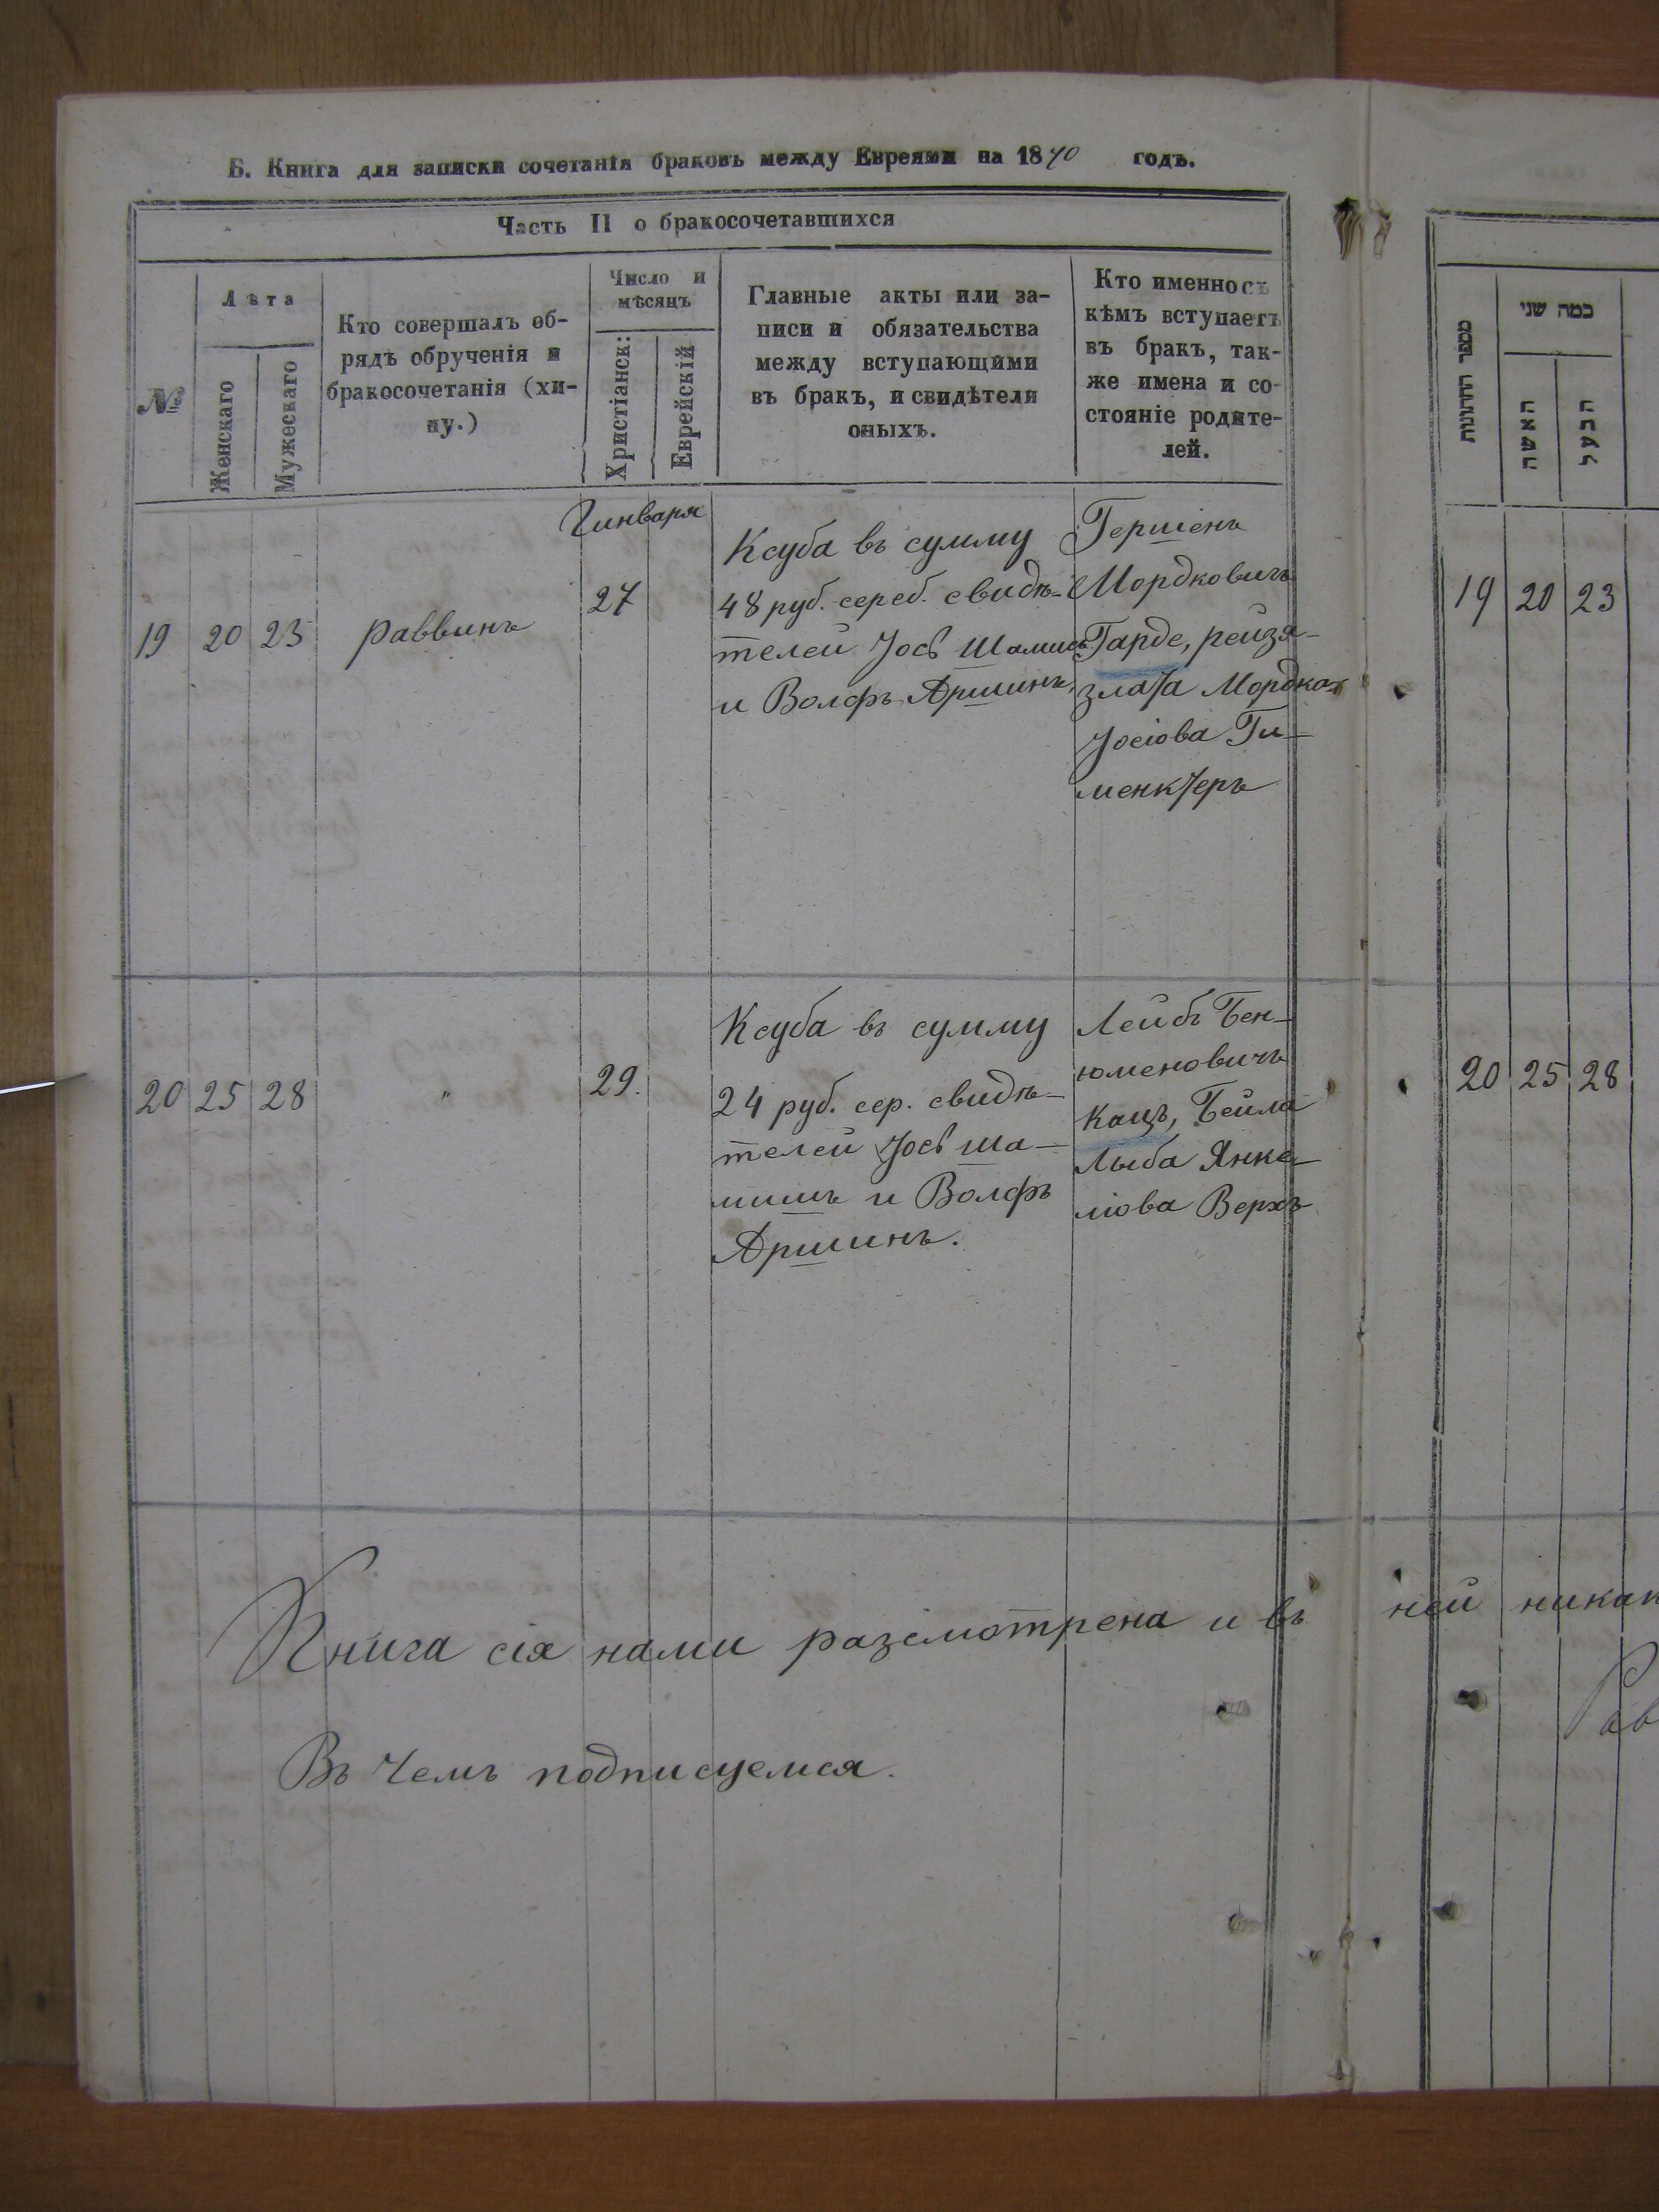 Б. Книга для записки сочетанія браковъ между Евреями на 1870 годъ.
Часть II о бракосочетавшихся
№
Лѣта
Женскаго
Мужескаго
Кто совершалъ об-
рядъ обрученія и
бракосочетанія (хи-
пу.)
Число и
мѣсяцъ
Христіанск:
Еврейскій
Главные акты или за-
писи и обязательства
между вступающими
въ бракъ, и свидѣтели
оныхъ.
Кто именно съ
кѣмъ вступаетъ
въ бракъ, так-
же имена и со-
стояніе родите-
лей.
Января
19 20 23 раввинъ 27
Ксуба въ сумму
48 руб. сереб. свидѣ-
телей Іось Шамишъ
и Волфъ Аршинъ,
Гершенъ
Мордковичъ
Гарде, рейзя-
злата Мордка-
Іосіова Ги-
менктеръ
20 25 28 " 29.
Ксуба въ сумму
24 руб. сер. свидѣ-
телей Іось ша-
мишъ и Волфъ
Аршинъ.
Лейбъ Бен-
юменовичъ
Кацъ, Бейла
Лыба Янке-
ліова Верхъ
Книга сія нами разсмотрена и въ ней никак
Въ чемъ подписуемся.
מספר החתונות
כמה שני
האשה
הבעל
19 20 23
20 25 28
Рав